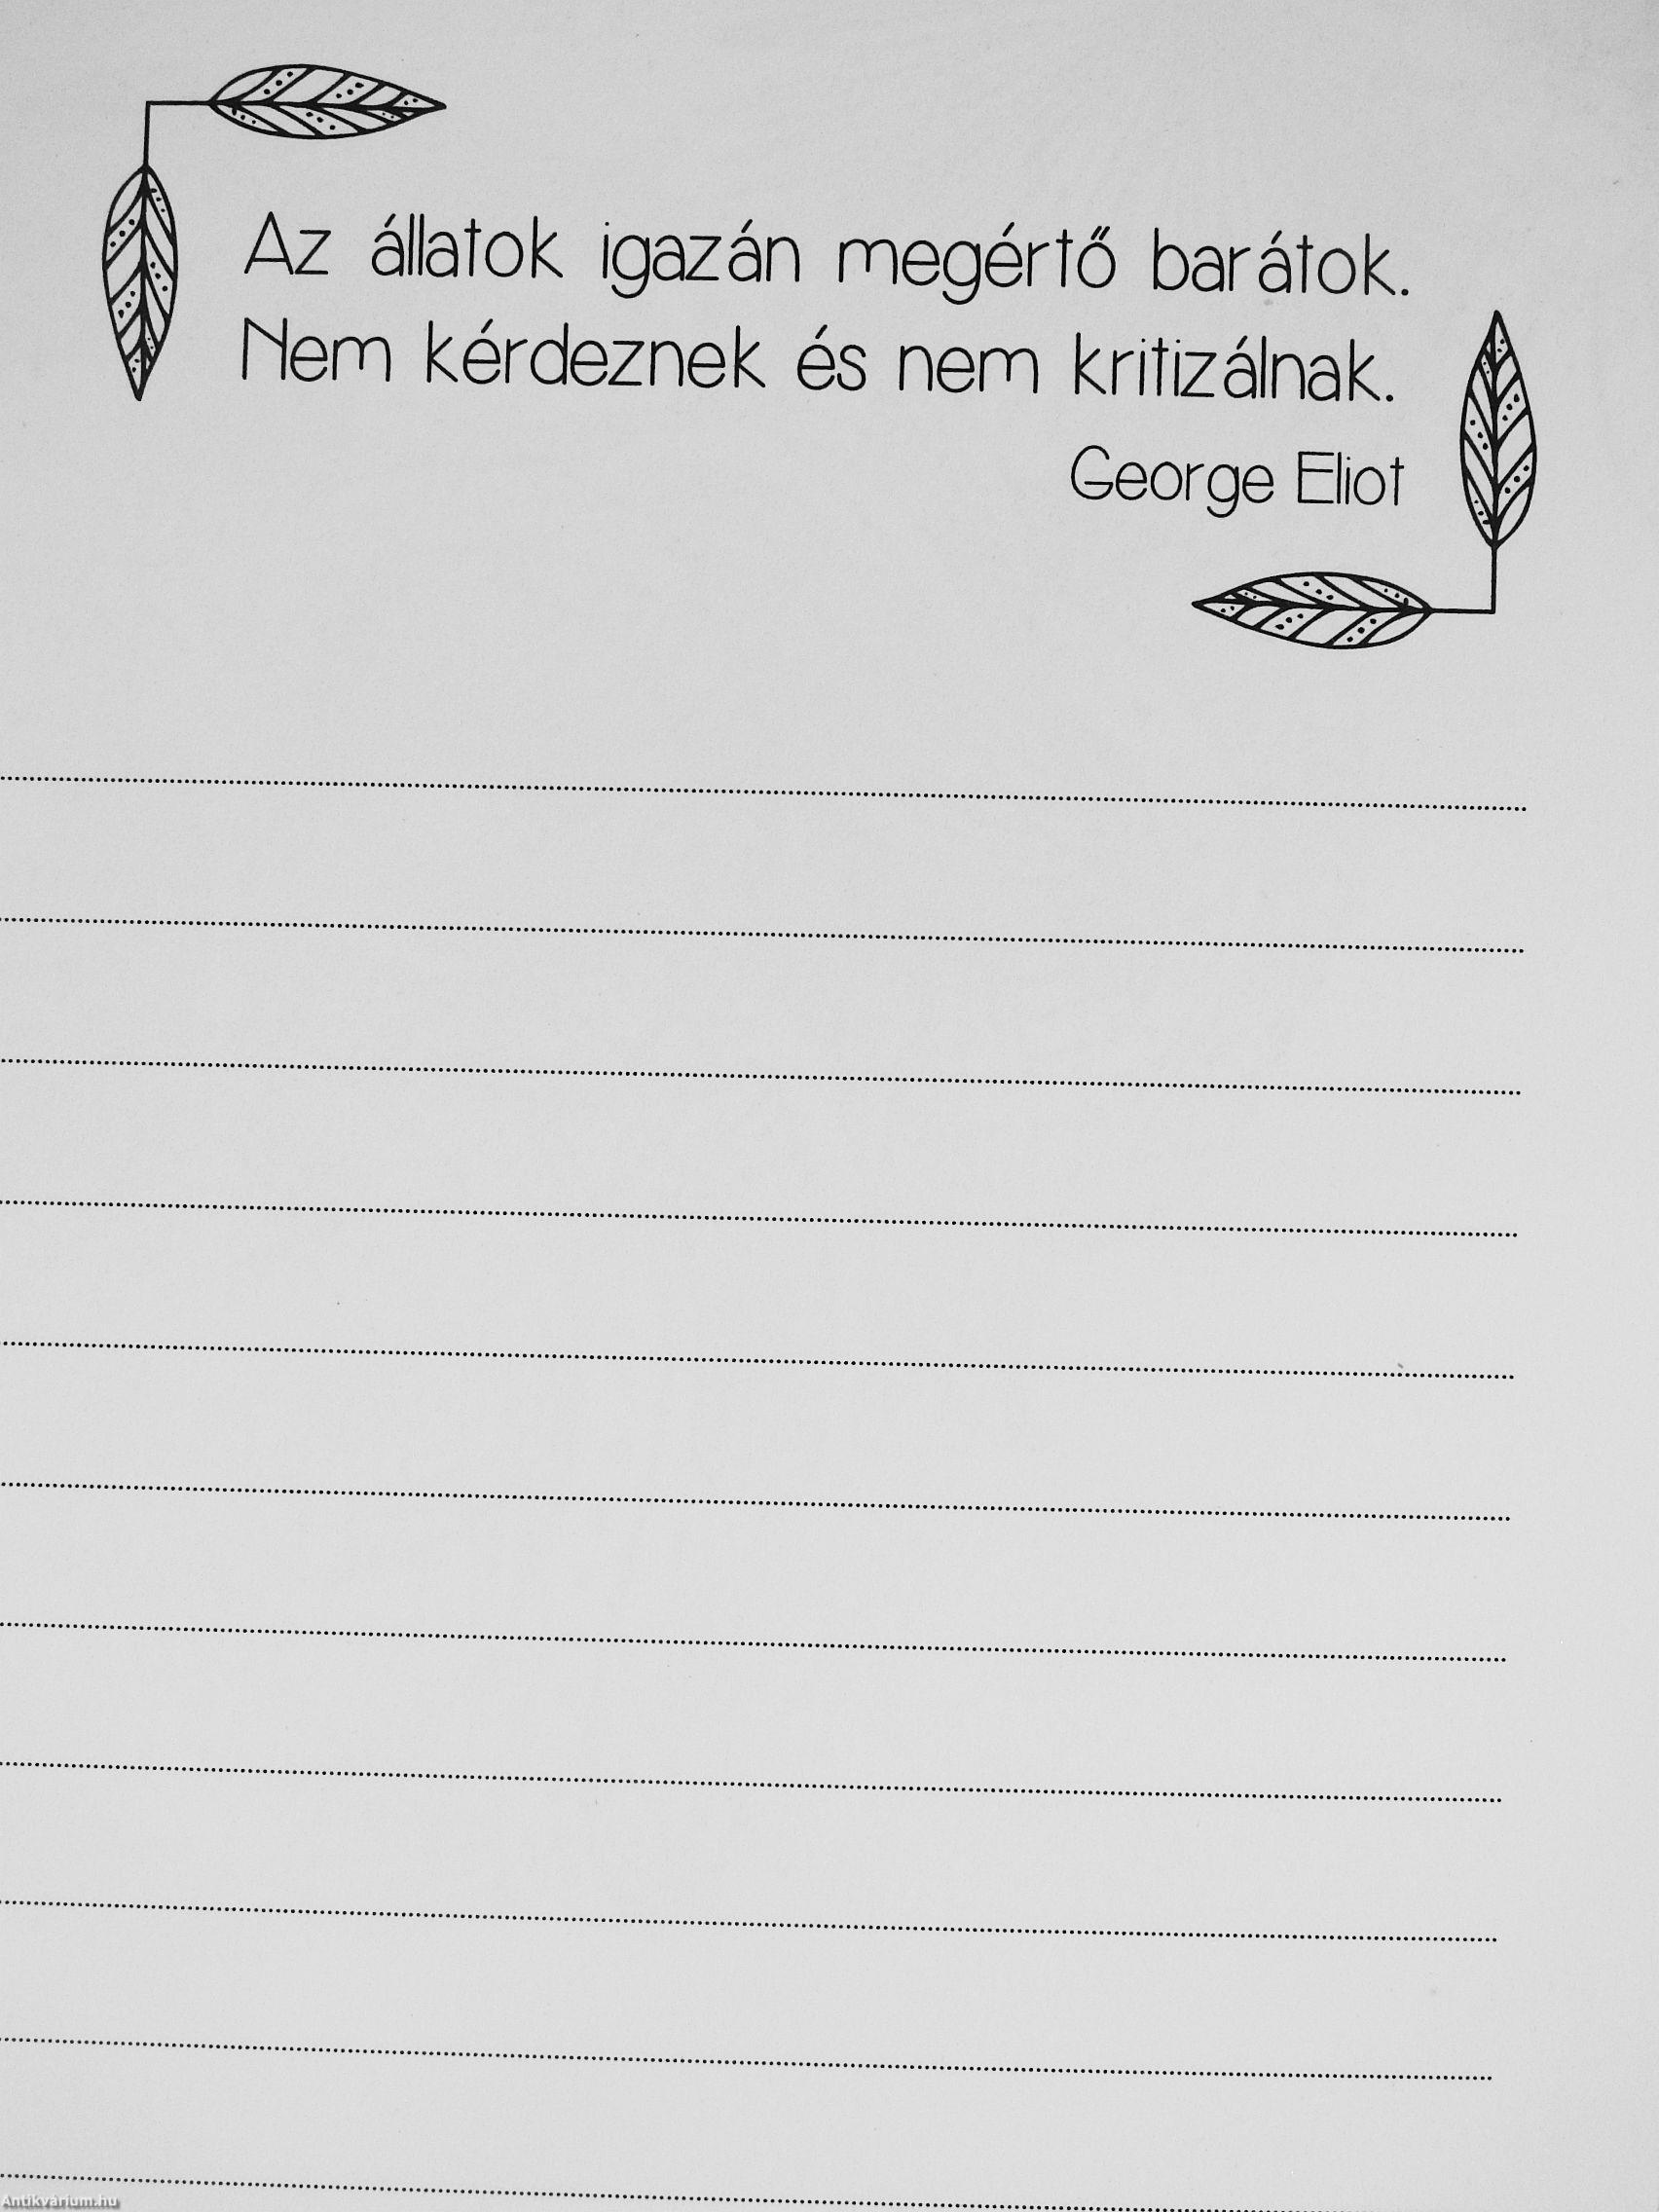 Az állatok igazán megértő barátok.
Nem kérdeznek és nem kritizálnak.
George Eliot
Antikvárium.hu